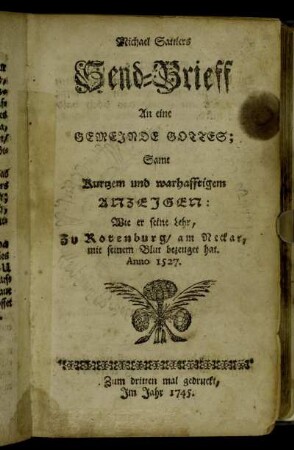 Michael Sattlers
Send-Brieff
An eine
GEMEINDE GOTTES;
Samt
Kurtzem und warhafftigem
ANZEIGEN:
Wie er seine Lehr,
Zu Rotenburg/ am Neckar,
mit seinem Blut bezeuget hat.
Anno 1527.
Zum dritten mal gedruckt,
Im Jahr 1745.